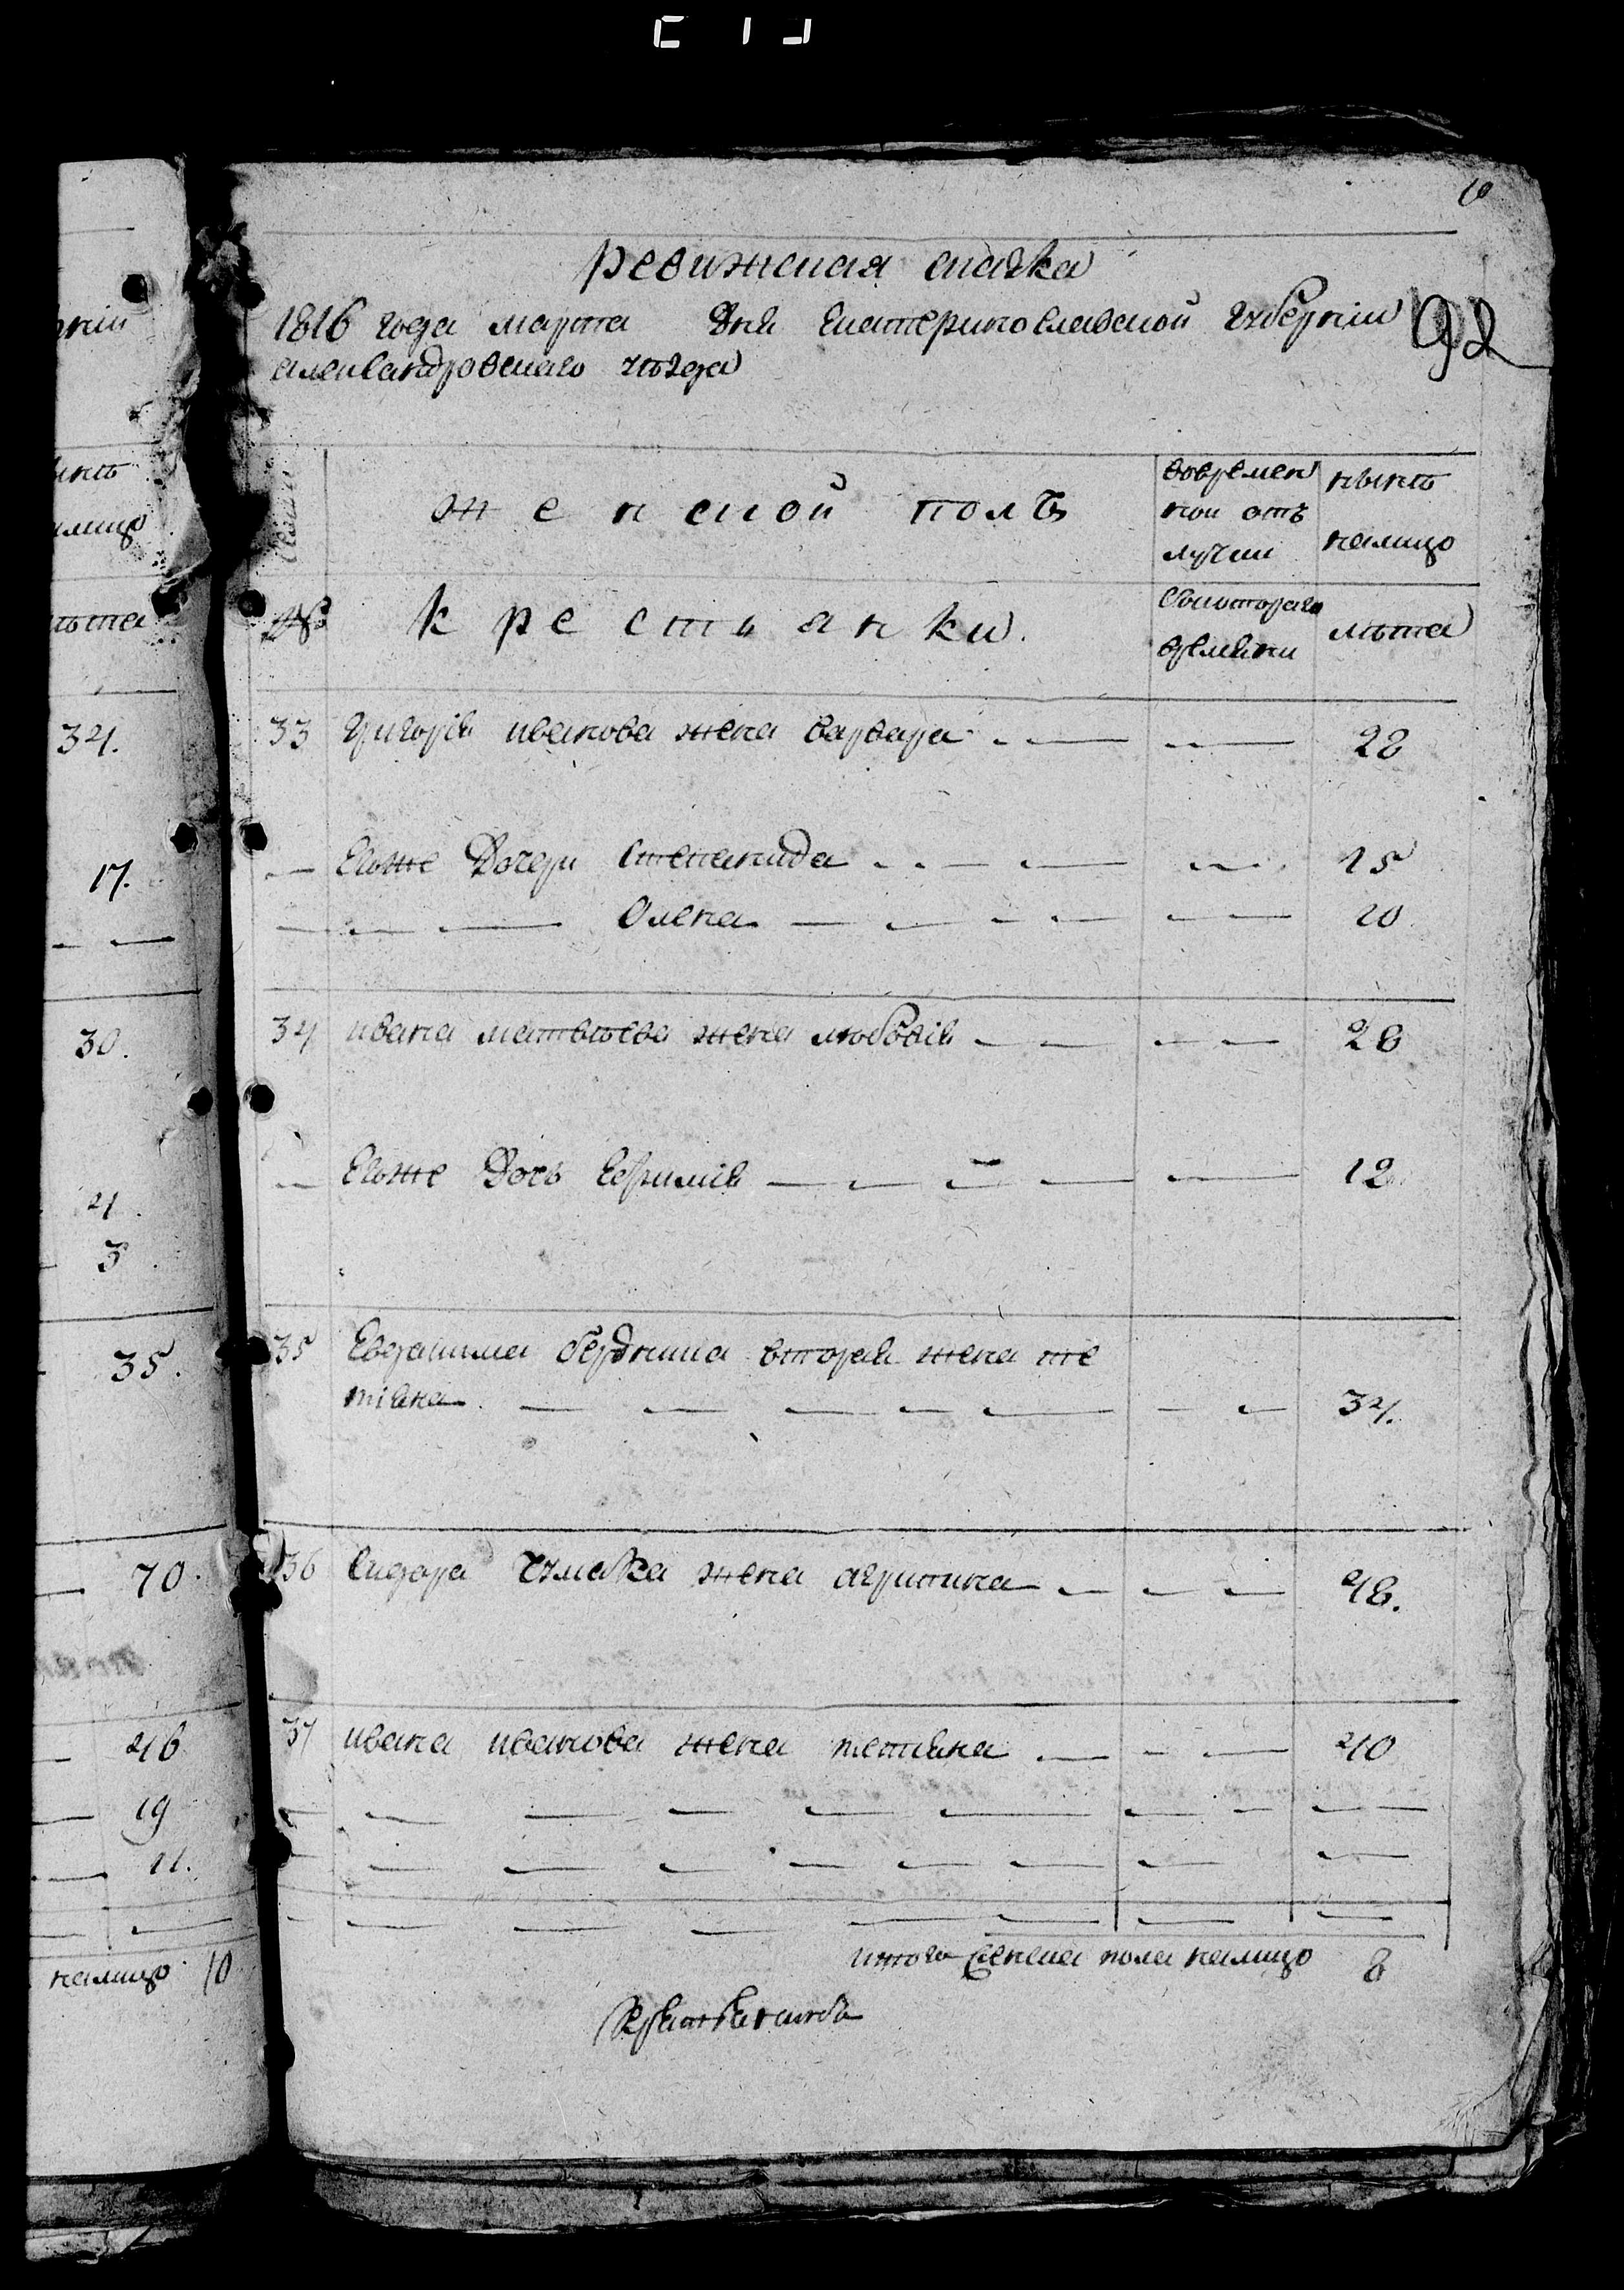 10
ревижская сказка
1816 года марта Дня Екатеринославской губернiи
92
александровскаго уѣзда
женской полъ
вовремен
ной отъ
лучки
нынѣ
налицо
№
крестьянки.
Скотораго
времени
лѣта
33 григорiя иванова жена варвара 28
Егоже Дочери степанида 15
Олена 10
34 ивана матвѣева жена любовiя 28
Егоже Дочь Ефимiя 12
35 Евдакима бердника вторая жена те
тiяна 34.
36 Сидора чумака жена агрипина 48.
37 ивана иванова жена тетияна 40
итого женска пола налицо 8
рнiи
ынѣ
алицо
ѣта
34.
17.
30.
4.
3.
35.
70.
46
19
11.
налицо 10